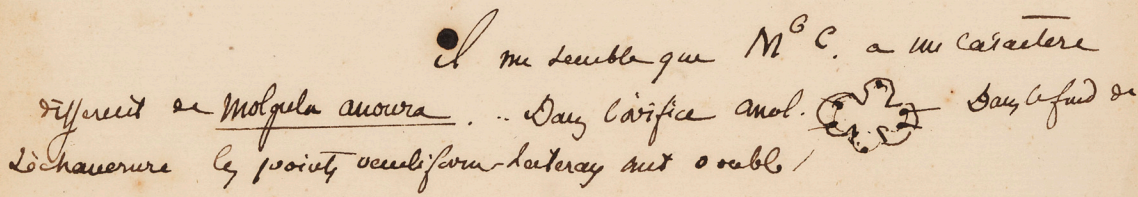 Il me semble que M^G C. a un caractère
different de Molgula anoura. .. Dans l'orifice anal. Dans le fond de
l'échancrure les points laterax sont double